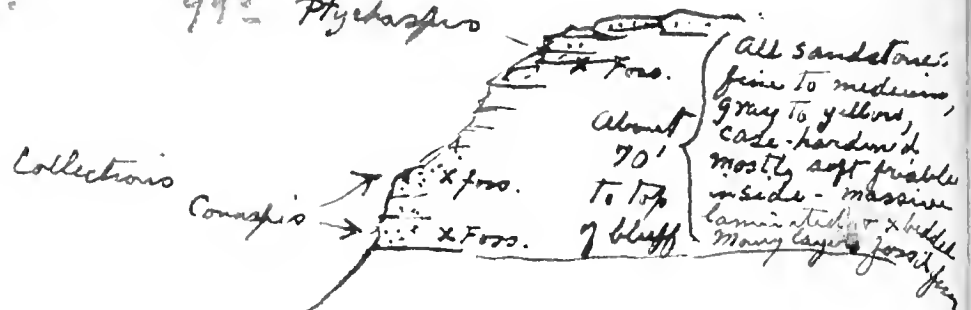 Ptychaspis
x Foss.
Collections
x foss.
Conaspis
x Foss.
About
70'
to top
of bluff
All sandstone:
fine to medium,
gray to yellow,
case-hardened
mostly soft friable
inside - massive
laminated or xbedded
Many layers